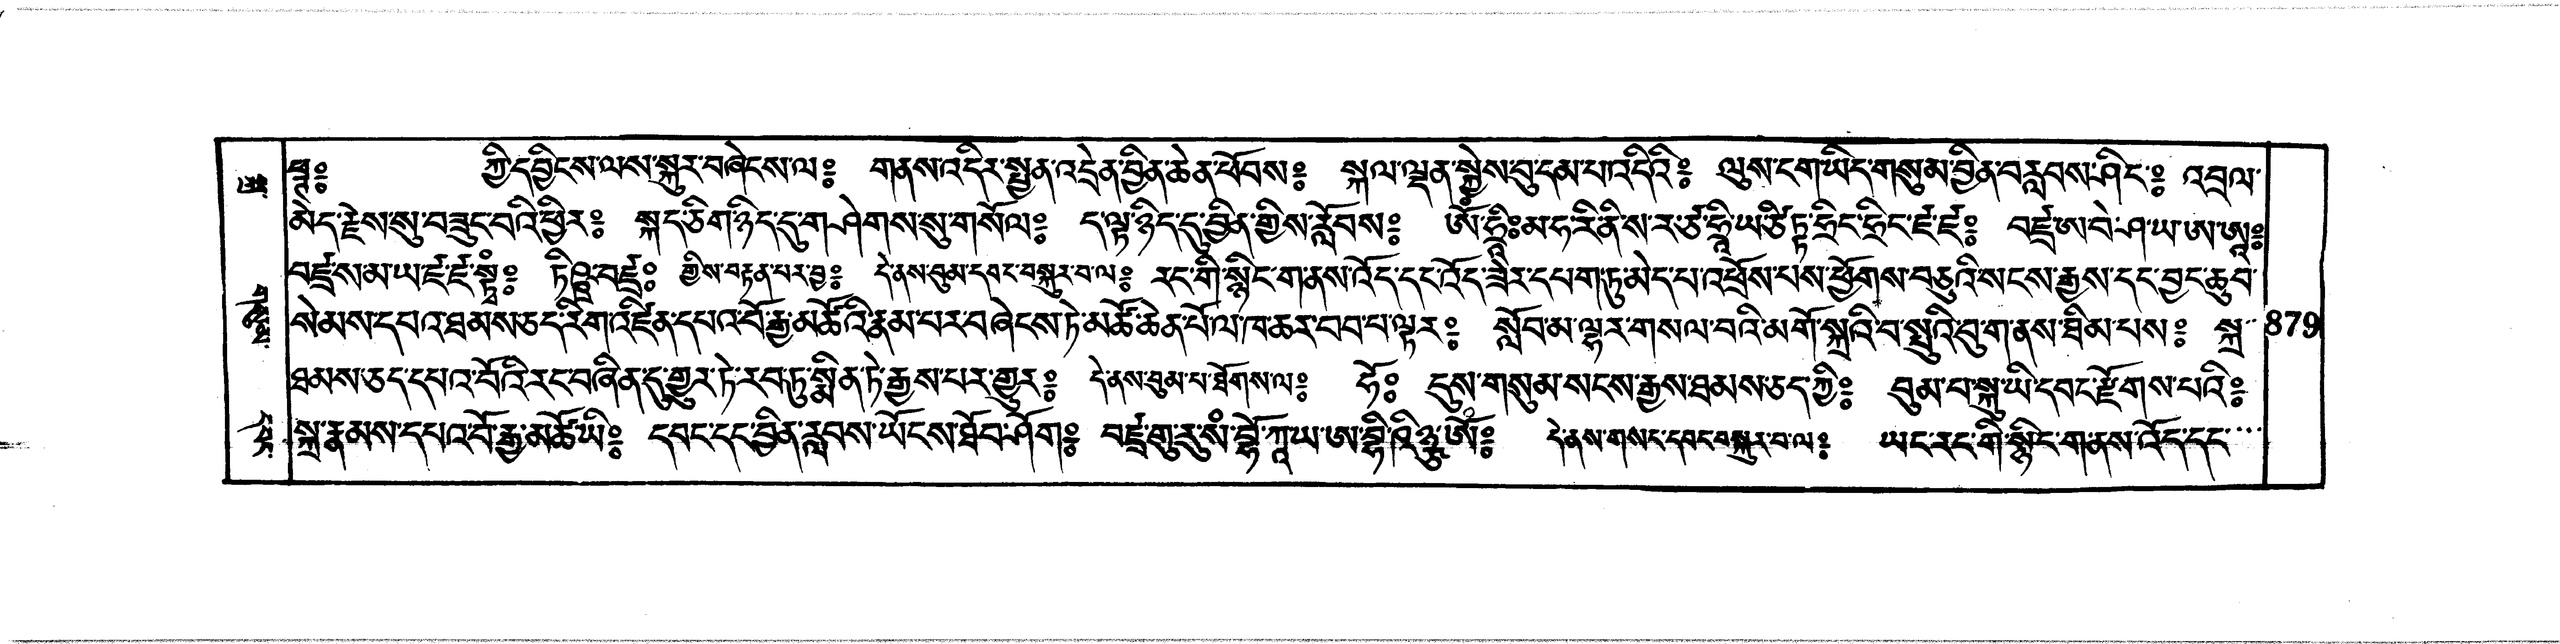 ཀྱི་ད་བྱིངས་ལས་སྐུར་བཞེངས་ལ༔ གནས་འདིར་སྤྱན་འདྲེན་བྱིན་ཆེན་ཕོབས༔ སྐལ་ལྡན་སྐྱེས་བུ་དམ་པ་འདིའི༔ ལུས་ངག་ཡིད་གསུམ་བྱིན་བརླབས་ཤིང་༔ འབྲལ་
མེད་རྗེས་སུ་བཟུང་བའི་ཕྱིར༔ སྐད་ཅིག་ཉིད་དུ་གཤེགས་སུ་གསོལ༔ ད་ལྟ་ཉིད་དུ་བྱིན་གྱིས་རློབས༔ ཨོཾ་ཧྲཱིཿམ་ཧ་རི་ནི་ས་ར་ཙ་ཧྲཱི་ཡ་ཙིཏྟ་ཧྲིང་ཧྲིང་ཛཿཛཿ༔ བཛྲ་ཨ་བེ་ཤ་ཡ་ཨ་ཨཱ༔
བཛྲ་ས་མ་ཡ་ཛཿཛཿསྟྭཾ༔ ཏིཥྛ་བཛྲ༔ གྱིས་བརྟན་པར་བྱ༔ དེ་ནས་བུམ་དབང་བསྐུར་བ་ལ༔ རང་གི་སྙིང་གནས་འོད་དང་འོད་ཟེར་དཔག་ཏུ་མེད་པ་འཕྲོས་པས་ཕྱོགས་བཅུའི་སངས་རྒྱས་དང་བྱང་ཆུབ་
སེམས་དཔའ་ཐམས་ཅད་རིག་འཛིན་དཔའ་བོ་རྒྱ་མཚོའི་རྣམ་པར་བཞེངས་ཏེ་མཚོ་ཆེན་པོ་ལ་ཁ་ཆར་བབ་པ་ལྟར༔ སློབ་མ་ལྷར་གསལ་བའི་མགོ་སྐྲའི་བ་སྤུའི་བུ་ག་ནས་ཐིམ་པས༔ སྐྲ་ 879
ཐམས་ཅད་དཔའ་བོའི་རང་བཞིན་དུ་གྱུར་ཏེ་རབ་ཏུ་སྨིན་ཏེ་རྒྱས་པར་གྱུར༔ དེ་ནས་བུམ་པ་ཐོགས་ལ༔ ཧོ༔ དུས་གསུམ་སངས་རྒྱས་ཐམས་ཅད་ཀྱི༔ བུམ་པ་སྐུ་ཡི་དབང་རྫོགས་པའི༔
སྐྲ་རྣམས་དཔའ་བོ་རྒྱ་མཚོ་ཡི༔ དབང་དང་བྱིན་རླབས་ཡོངས་ཐོབ་ཤོག༔ བཛྲ་གུ་རུ་སཾ་བྷོ་ཀཱ་ཡ་ཨ་བྷི་ཥིཉྩ་ཨོཾ༔ དེ་ནས་གསང་དབང་བསྐུར་བ་ལ༔ ཡང་རང་གི་སྙིང་གནས་འོད་དང་